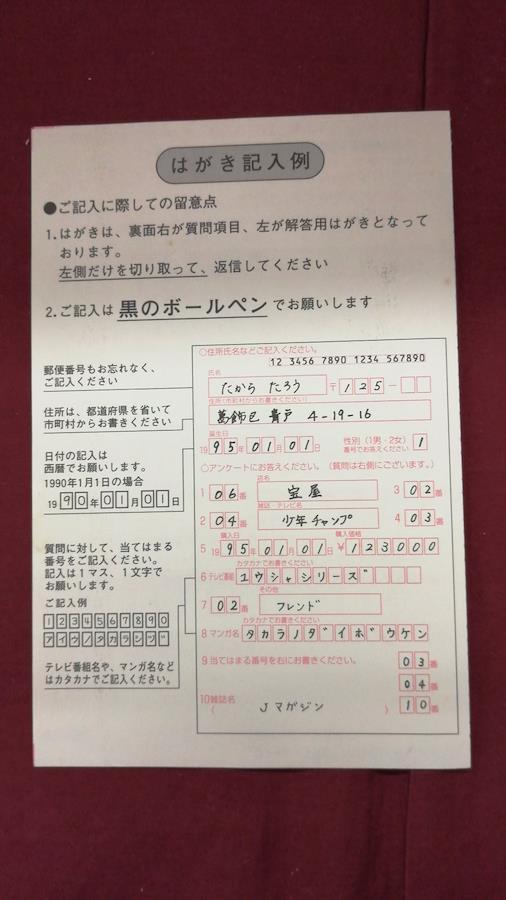 はがき記入例
●ご記入に際しての留意点
1.はがきは、裏面右が質問項目、左が解答用はがきとなって
おります。
左側だけを切り取って、返信してください
2.ご記入は黒のボールペンでお願いします
郵便番号もお忘れなく、
ご記入ください
住所は、都道府県を省いて
市町村からお書きください
日付の記入は
西暦でお願いします。
1990年1月1日の場合
1990年01月01日
質問に対して、当てはまる
番号をご記入ください。
記入は1マス、1文字で
お願いします。
ご記入例
1234567890
アイウノタカラシヅ
テレビ番組名や、マンガ名など
はカタカナでご記入ください。
○住所氏名などご記入ください。
12 3456 7890 1234 567890
氏名
たから たろう 〒125-
住所(市町村からお書きください)
葛飾区 青戸 4-19-16
誕生日
1995年01月01日 性別(1男・2女) 1
番号でお答えください
○アンケートにお答えください。(質問は右側にございます。)
店名
1 06番 宝屋 3 02番
雑誌・テレビ名
2 04番 少年チャンプ 4 03番
購入日 購入価格
5 1995年01月01日 ¥123000
カタカナでお書きください
6テレビ番組 ユウシャシリーズ
その他
7 02番 フレンド
カタカナでお書きください
8マンガ名 タカラノダイボウケン
9当てはまる番号を右にお書きください。 03番
04番
10雑誌名 10番
( Jマガジン )